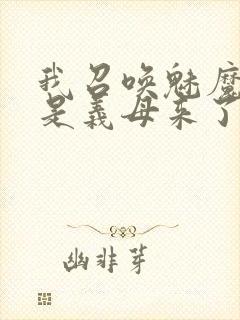 我召唤魅魔
是义母来了
幽非芽